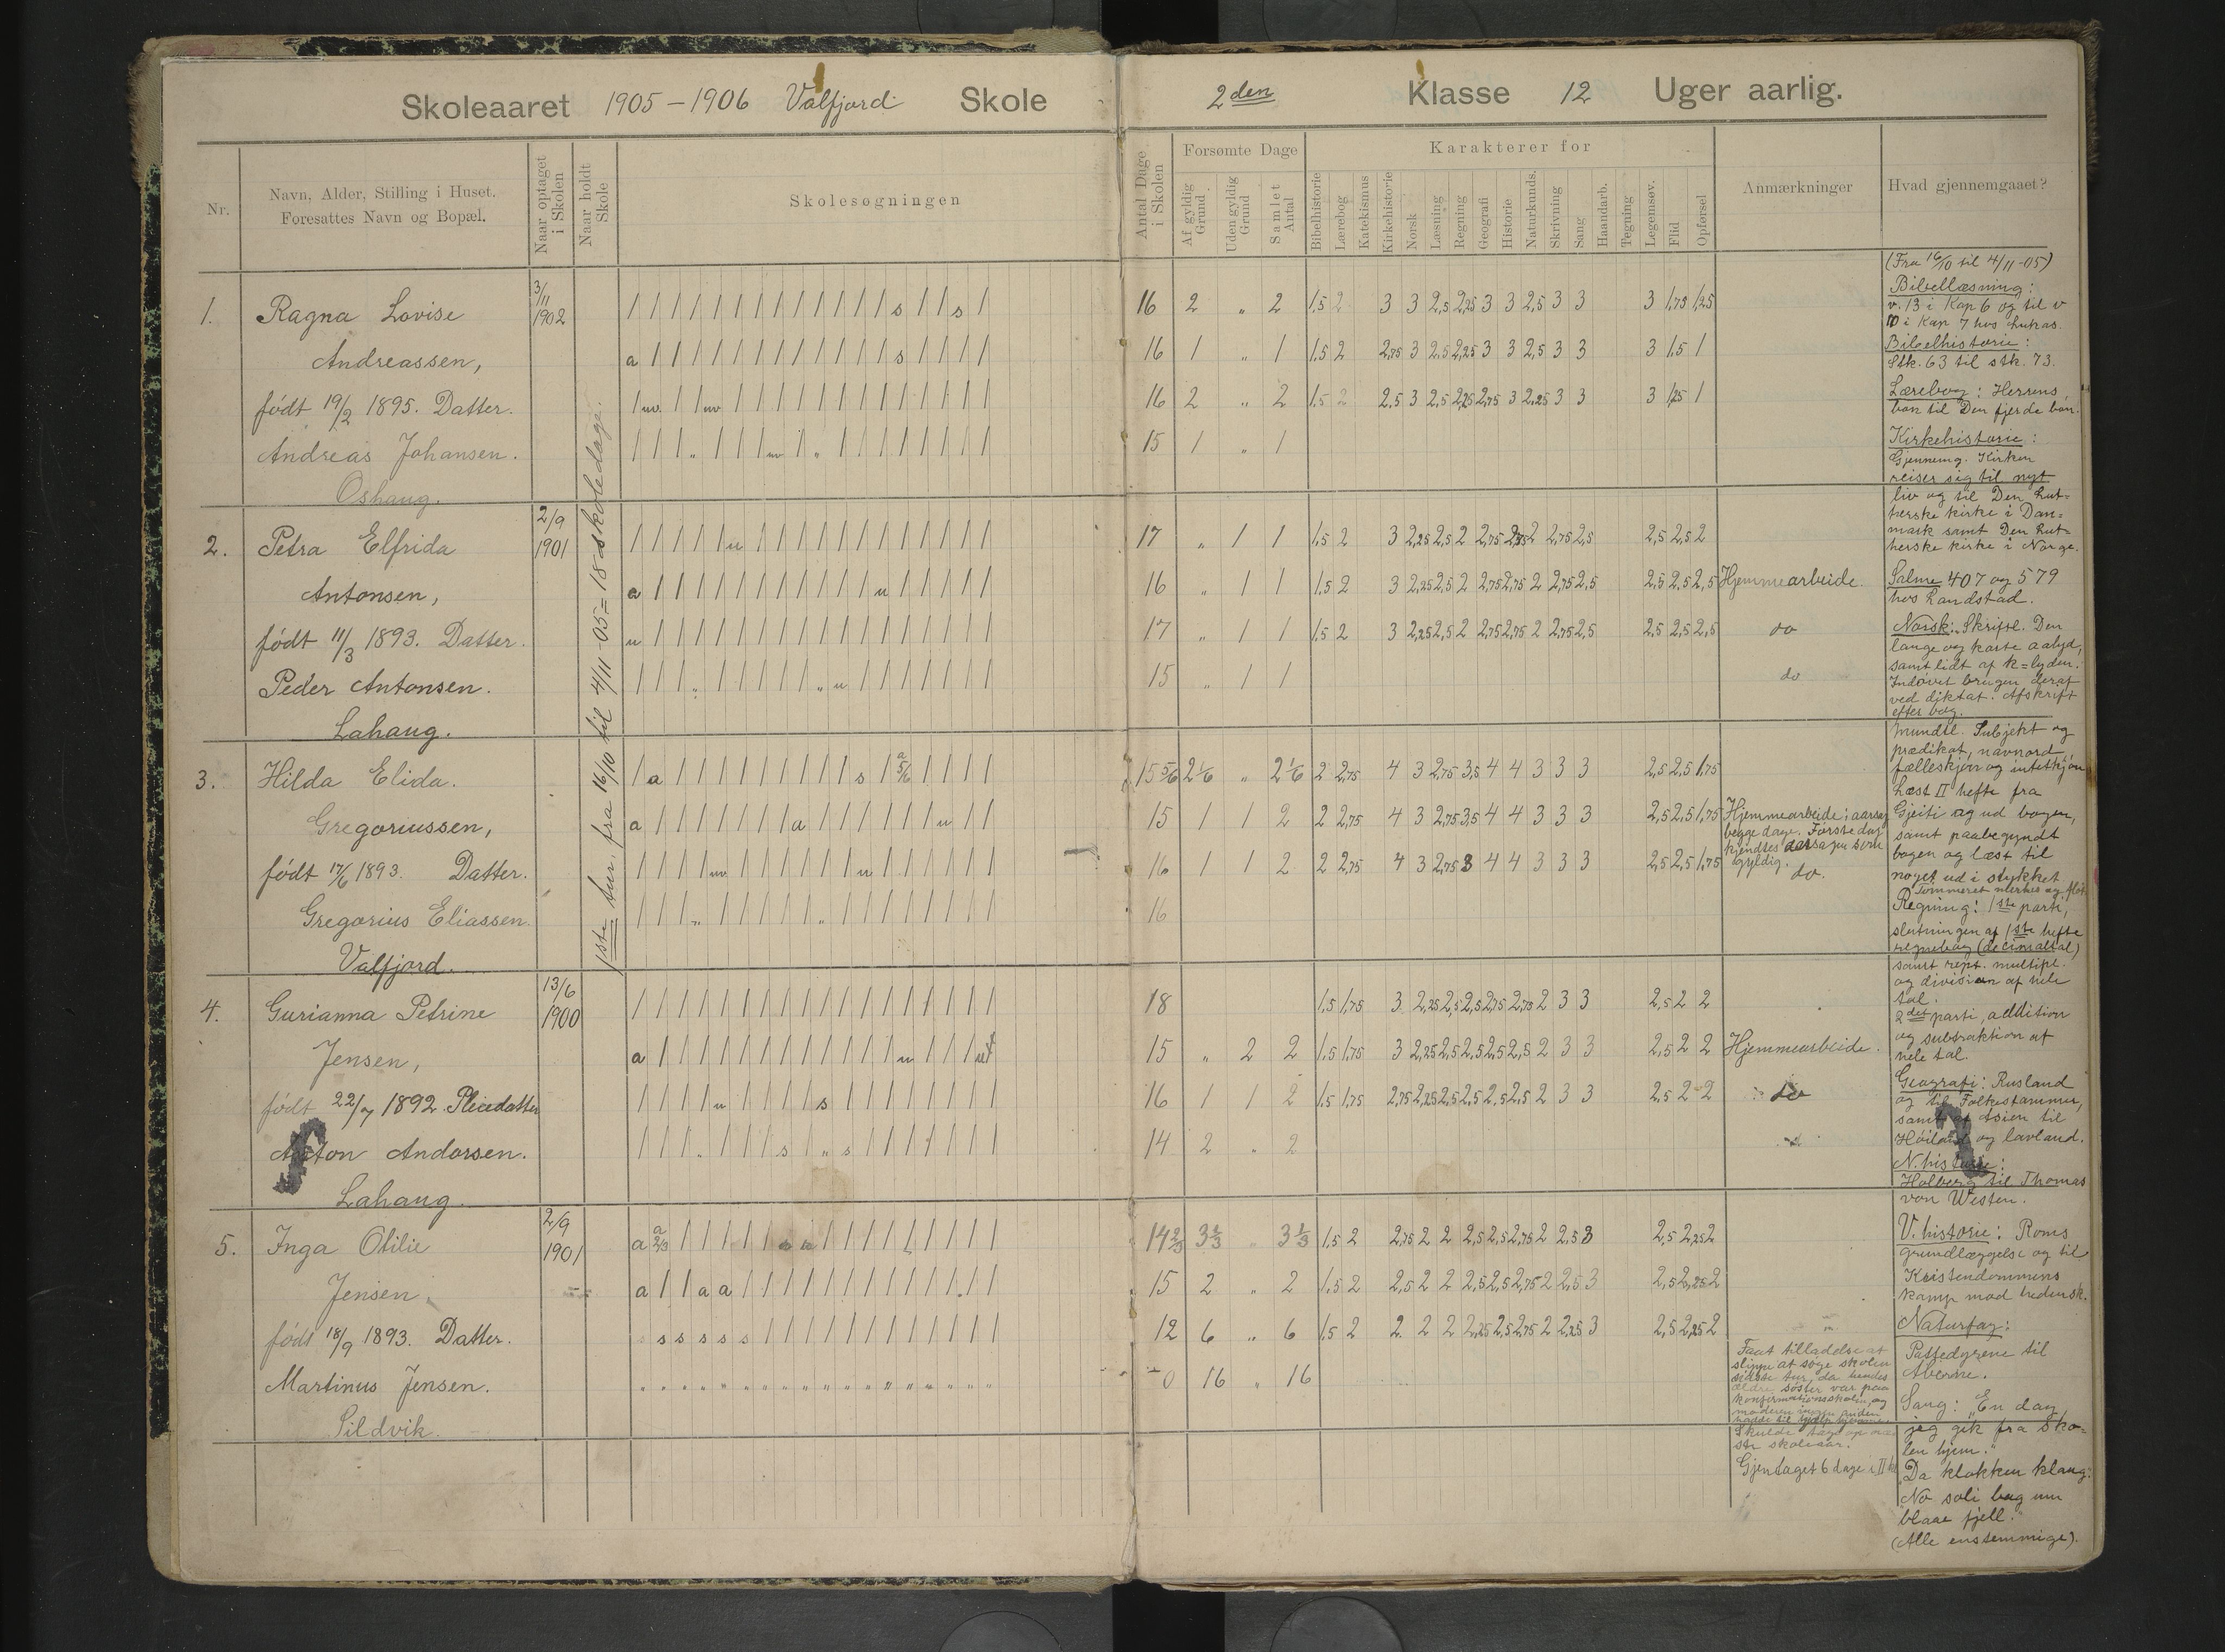 Skoleaaret 1905-1906 Valfjord Skole
2den Klasse 12 Uger aarlig.
Nr.
Navn, Alder, Stilling i Huset.
Foresattes Navn og Bopæl.
Naar optaget
i Skolen
Naar holdt
Skole
Skolesøgningen
Antal Dage
i Skolen
Forsømte Dage
Af gyldig
Grund
Uden gyldig
Grund
Samlet
Antal
Karakterer for
Bibelhistorie
Lærebog
Katekismus
Kirkehistorie
Norsk
Læsning
Regning
Geografi
Historie
Naturkunds.
Skrivning
Sang
Haandarb.
Tegning
Legemsøv.
Flid
Opførsel
Anmærkninger
Hvad gjennemgaaet?
1ste tur, fra 16/10 til 4/11-05 = 18 skoledage.
1. Ragna Lovise 3/11 1902
Andreassen,
født 19/2 1895. Datter.
Andreas Johansen.
Oshaug.
16 2 „ 2 1,5 2 3 3 2,5 2,25 3 3 2,5 3 3 3 1,75 1,25
16 1 „ 1 1,5 2 2,75 3 2,5 2,25 3 3 2,5 3 3 3 1,5 1
16 2 „ 2 1,5 2 2,5 3 2,5 2,25 2,75 3 2,25 3 3 3 1,25 1
15 1 „ 1
2. Petra Elfrida 2/9 1901
Antonsen,
født 11/3 1893. Datter.
Peder Antonsen.
Lahaug.
17 „ 1 1 1,5 2 3 2,25 2,5 2 2,75 2,75 2 2,75 2,5 2,5 2,5 2
16 „ 1 1 1,5 2 3 2,25 2,5 2 2,75 2,75 2 2,75 2,5 2,5 2,5 2,5 Hjemmearbeide.
17 „ 1 1 1,5 2 3 2,25 2,5 2 2,75 2,75 2 2,75 2,5 2,5 2,5 2,5 do
15 „ 1 1 do
3. Hilda Elida.
Gregoriussen,
født 17/6 1893. Datter.
Gregorius Eliassen.
Valfjord.
15 5/6 2 1/6 „ 2 1/6 2 2,75 4 3 2,75 3,5 4 4 3 3 3 2,5 2,5 1,75
15 1 1 2 2 2,75 4 3 2,75 3,5 4 4 3 3 3 2,5 2,5 1,75
Hjemmearbeide: aarsag
begge dage. Første dag
kjendtes aarsagen som
gyldig.
16 1 1 2 2 2,75 4 3 2,75 3 4 4 3 3 3 2,5 2,5 1,75 do.
16
4. Gurianna Petrine 13/6 1900
Jensen,
født 22/7 1892. Pleiedatter
Anton Andorsen.
Lahaug.
18 1,5 1,75 3 2,25 2,5 2,5 2,75 2,75 2 3 3 2,5 2 2
15 „ 2 2 1,5 1,75 3 2,25 2,5 2,5 2,5 2,5 2 3 3 2,5 2 2 Hjemmearbeide.
16 1 1 2 1,5 1,75 2,75 2,25 2,5 2,5 2,5 2,5 2 3 3 2,5 2 2 do
14 2 „ 2
5. Inga Otilie 2/9 1901
Jensen,
født 18/9 1893. Datter.
Martinus Jensen.
Sildvik.
14 2/3 3 1/3 „ 3 1/3 1,5 2 2,75 2 2 2,5 2,5 2,75 2 2,5 3 2,5 2,25 2
15 2 „ 2 1,5 2 2,5 2 2 2,5 2,5 2,75 2 2,5 3 2,5 2,25 2
12 6 „ 6 1,5 2 2 2 2 2,25 2,5 2,75 2 2,25 3 2,5 2,25 2
0 16 „ 16
Faat tilladelse at
slippe at søge skolen
sidste tur, da hendes
ældre søster var paa
konfirmationsskolen, og
moderen ingen anden
hadde til hjælp hjemme
Gjentaget 6 dage i II kl
(Fra 16/10 til 4/11-05)
Bibellæsning:
v. 13 i Kap 6 og til v
10 i Kap 7 hos Lukas.
Bibelhistorie:
Stk. 63 til stk. 73.
Lærebog: Herrens
bøn til Den fjerde bøn.
Kirkehistorie:
Gjennemg. Kirken
reiser sig til nyt
liv og til Den lut=
herske kirke i Dan=
mark samt Den lut=
herske kirke i Norge.
Salme 407 og 579
hos Landstad.
Norsk: Skriftl. Den
lange og korte aalyd,
samt lidt af k=lyden.
Indøvet brugen deraf
ved diktat. Afskrift
efter bog.
Mundtl. Subjekt og
prædikat, navnord,
fælleskjøn og intetkjøn
Læst II hefte fra
Gjeiti og ud bogen,
samt paabegyndt
bogen og læst til
noget ud i stykket
Tømmeret merkes og fløt
Regning: 1ste parti,
slutningen af 1ste hefte
regnebog (decimaltal)
samt rept. multipl.
og division af hele
tal.
2det parti, addition
og subtraktion af
hele tal.
Geografi: Rusland
og til Folkestammer,
samt af Asien til
Høiland og lavland.
N. historie:
Holberg til Thomas
von Westen.
V. historie: Roms
grundlæggelse og til
Kristendommens
kamp mod hedensk.
Naturfag:
Pattedyrene til
Aberne.
Sang: „En dag
jeg gik fra sko=
len hjem."
Da klokken klang:
No soli bag um
blaae fjell."
(Alle enstemmige).